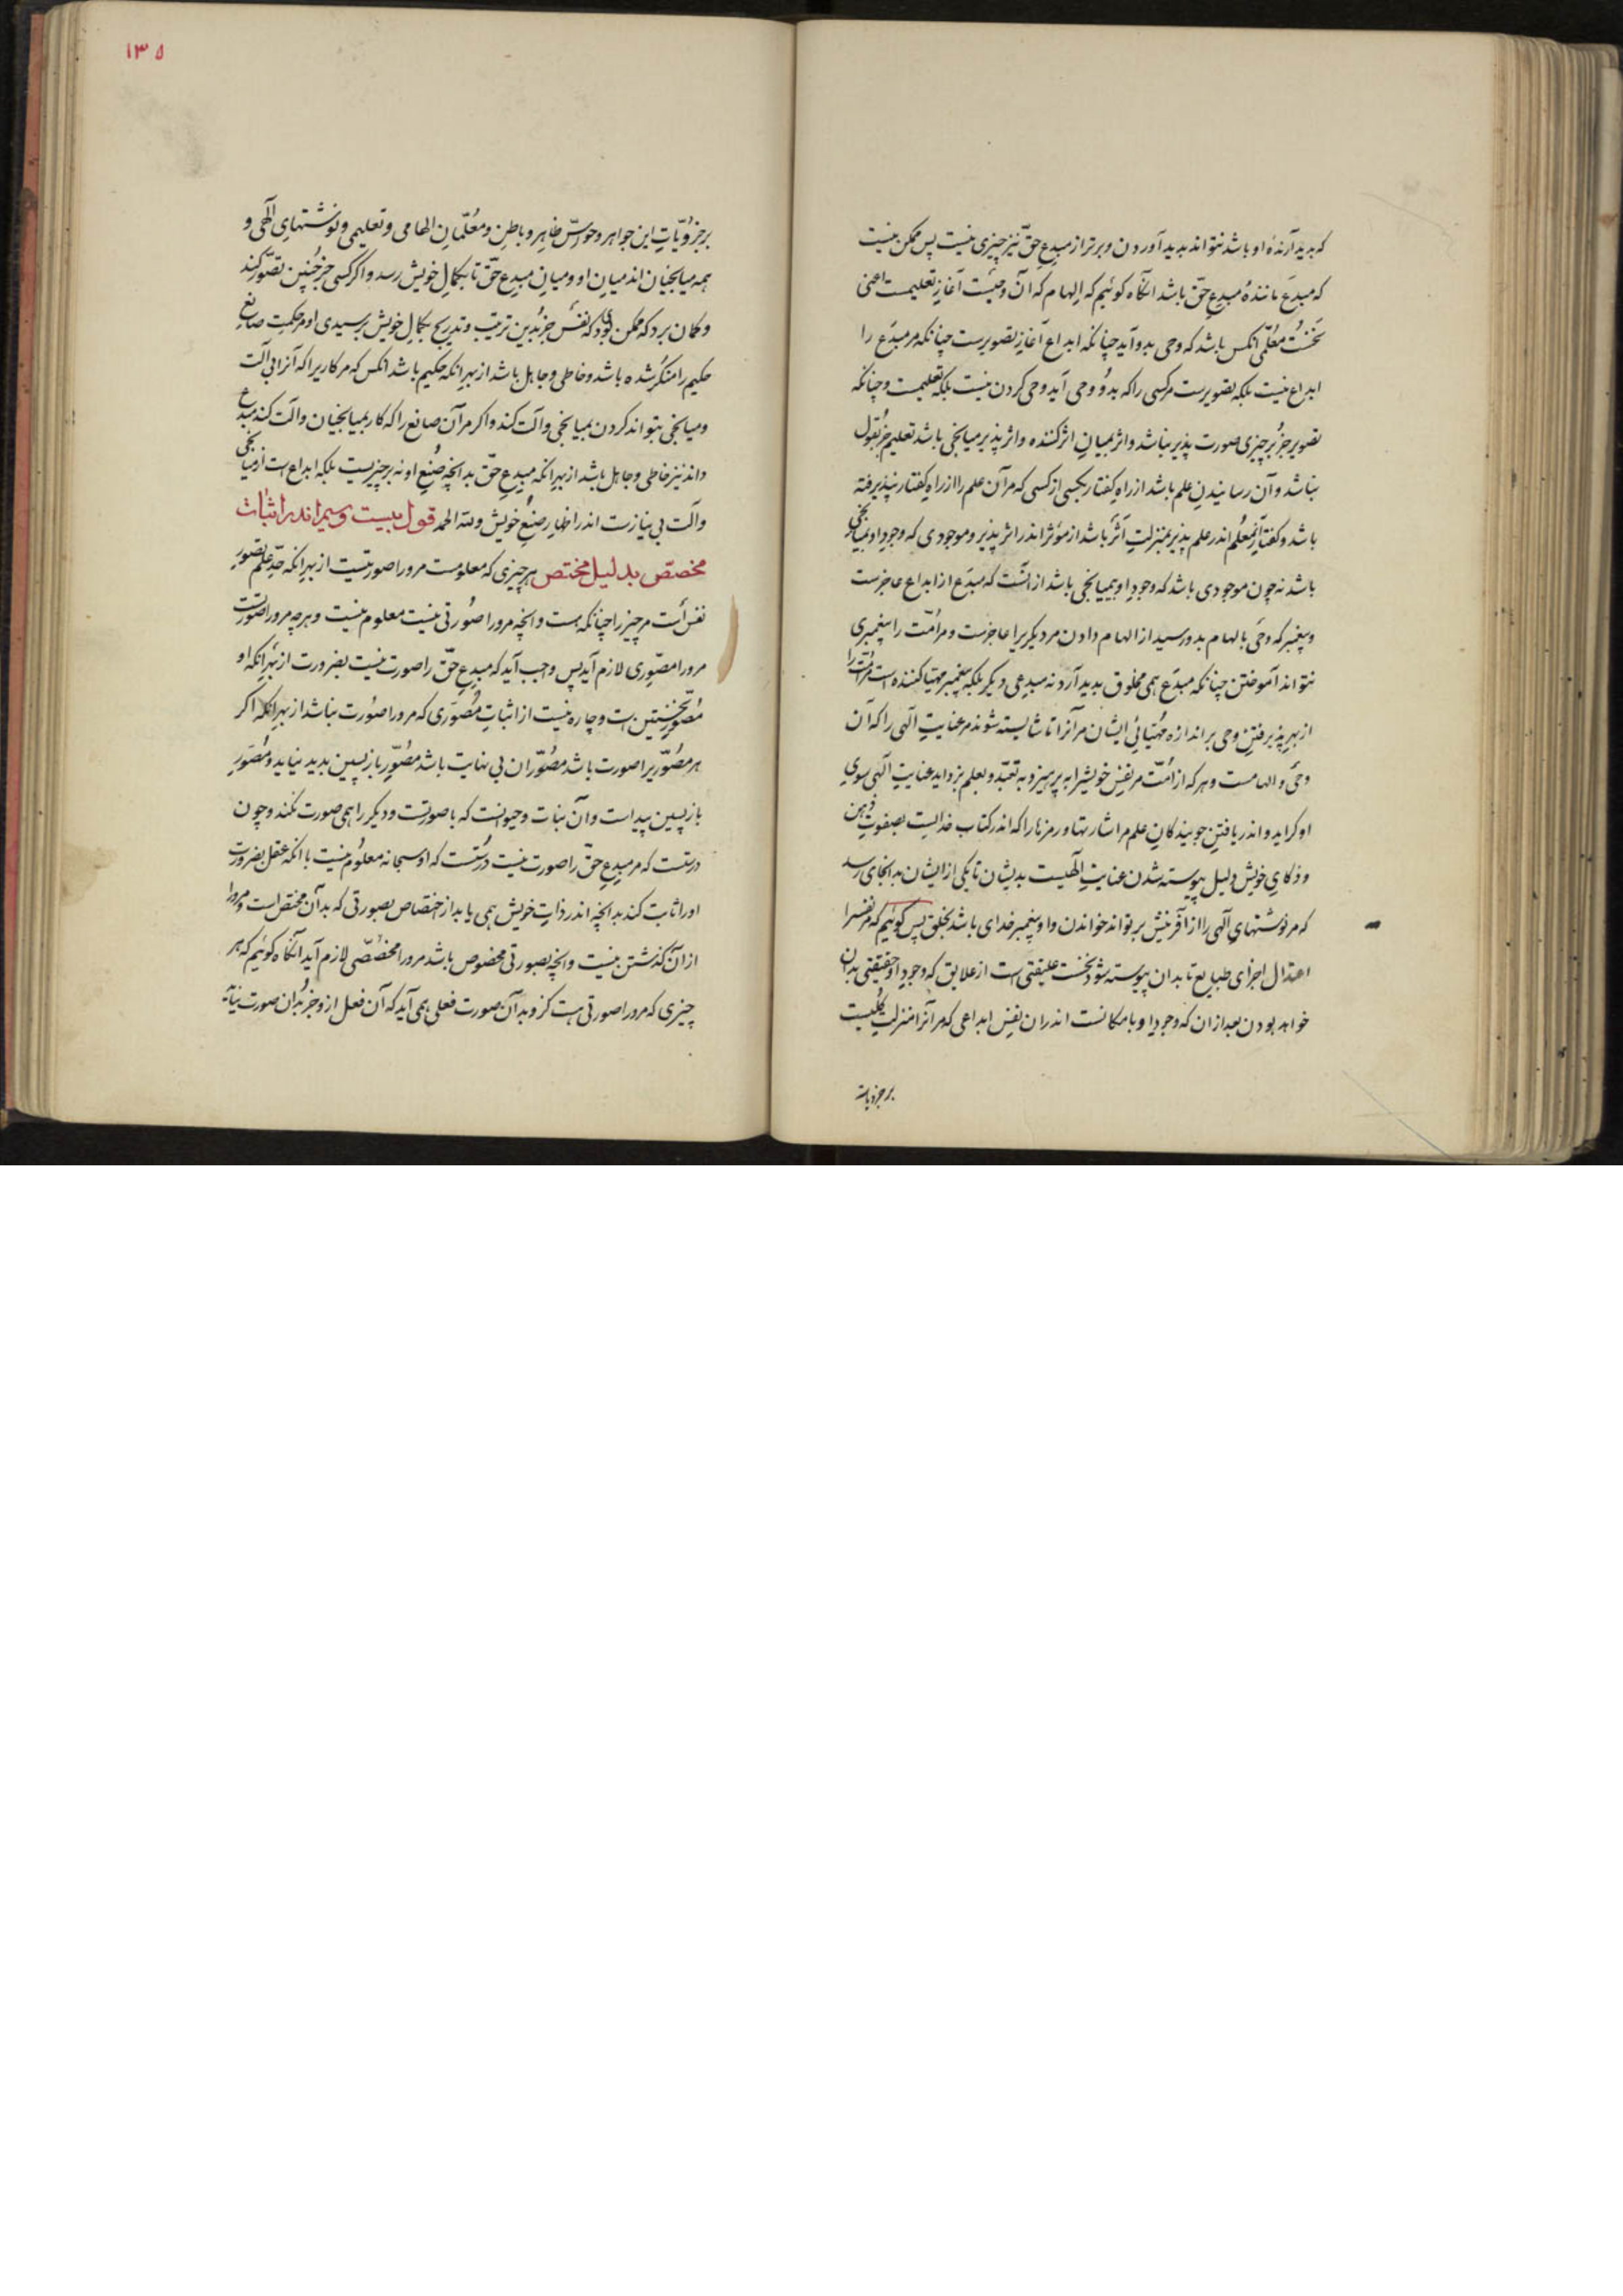 که پدید آرندهٔ او باشد نتواند پدید آوردن و برتر از مبدع حقّ نیز چیزی نیست پس ممکن نیست
که مبدَع مانندهٔ مبدِع حقّ باشد آنگاه کوئیم که الهام که آن وحیست آغاز تعلیمست اعنی
نخَستُ معُلّمی آنکس باشد که وحی بدو آید چنانکه ابداع آغاز تصویرست چنانکه مر مبدَع را
ابداع نیست بلکه تصویرست مر کسی را که بدو وحی آید وحی کردن نیست بلکه تعلیمست و چنانکه
تصویر جز بر چیزی صورت پذیر نباشد و اثر بمیان اثر کننده و اثر پذیر میانجی باشد تعلیم جز بقول
نباشد و آن رسانیدن علم باشد از راه کفتار بکسی از کسی که مر آن علم را از راه کفتار نپذیرفته
باشد و کفتار معُلّم اندر علم پذیر بمنزلت اَثَر باشد از مؤثر اندر اثر پذیر و موجودی که وجود او بمیانجی
باشد نه چون موجودی باشد که وجود او بی میانجی باشد از انست که مبدَع از ابداع عاجزست
و پیغمبر که وحی بالهام بدو رسید از الهام دادن مر دیکریرا عاجزست و مر امّت را پیغمبری
نتواند آموختن چنانکه مبدَع همی مخلوق پدید آرد نه مبدعی دیکر بلکه پیغمبر مهیّا کننده است مر امّت را
از بهر پذیرفتن وحی بر اندازه مُهَیّائی ایشان مر آنرا تا شایسته شوند مر عنایت الٓهی را که آن
وحی و الهامست و هر که از امُّت مر نفس خویشرا به پرهیز و به تعبّد و بعلم بزداید عنایت الٓهی سوی
او کراید و اندر یافتن جویندکان علم مر اشارتها و رمزها را که اندر کتاب خدایست بصفوت ذهن
و ذکای خویش دلیل پیوسته شدن عنایت الٓهیست بدیشان تا یکی از ایشان به آنجای رسد
که مر نوشتهای الٓهی را از آفرینش بر تواند خواندن و او پیغمبر خدای باشد بخلق پس کوئیم که مر نفسرا
اعتدال اجزای طبایع تا بدان پیوسته شود نخست علیقتی است از علایق که وجود او حقیقتی بدان
خواهد بودن بعد از ان که وجود او بامکانست اندر ان نفس ابداعی که مر آنرا منزلت کُلیست
بر جزویات
١٣٥
بر جزویّاتِ این جواهر و حواسّ ظاهر و باطن و معُلّمان الهامی و تعلیمی و نوشتهای الٓهی و
همه میانجیان اند میان او و میان مبدع حقّ تا بکمال خویش رسد و اکر کسی جز چنین تصّور کند
و کمان برد که ممکن بودی که نفس جز بدین ترتیب و تدریج بکمال خویش برسیدی او مر حکمت صانع
حکیم را منکر شده باشد و خاطی و جاهل باشد از بهر انکه حکیم باشد انکس که مر کاریرا که آنرا بی آلت
و میانجی بتواند کردن بمیانجی و آلت کند و اکر مر آن صانع را که کار بمیانجیان و آلت کند مبدع
داند نیز خاطی و جاهل باشد از بهر انکه مبدِع حقّ بدانچه صُنع او نه بر چیزیست بلکه ابداع است از میانجی
و آلت بی نیازست اندر اظهار صنُع خویش و لله الحمد قول بیست و سیم اندر اثبات
مخصّص بدلیل مختص هر چیزی که معلومست مر ورا صورتیست از بهر انکه حدّ علم تصور
نفس اَست مر چیز را چنانکه هست و انچه مر ورا صُورتی نیست معلوم نیست و هر چه مر ورا صُورتست
مر ورا مصّوری لازم آید پس واجب آید که مبدع حقّ را صورت نیست بضرورت از بهر انکه او
مُصّور نخستین است و چاره نیست از اثبات مُصّوری که مر ورا صوُرت نباشد از بهر انکه اکر
هر مصُّوریرا صورت باشد مصُّوران بی نهایت باشد مُصّور باز پسین پدید نیاید و مُصَّور
باز پسین پیداست و آن نبات و حیوانست که با صورتست و دیکر را همی صورت نکند و چون
درستست که مر مبدع حقّ را صورت نیست درُستست که او سبحانه معلُوم نیست با انکه عقل بضرورت
او را ثابت کند بدانچه اندر ذاتِ خویش همی یابد از اختصاص بصورتی که بدان مختص است و مر ورا
از ان کذشتن نیست و انچه بصورتی مخصوص باشد مر ورا مخصّصی لازم آید آنکاه کوئیم که هر
چیزی که مر ورا صورتی هست کز و بدان صورت فعلی همی آید که آن فعل ازو جز بدان صورت نیاید